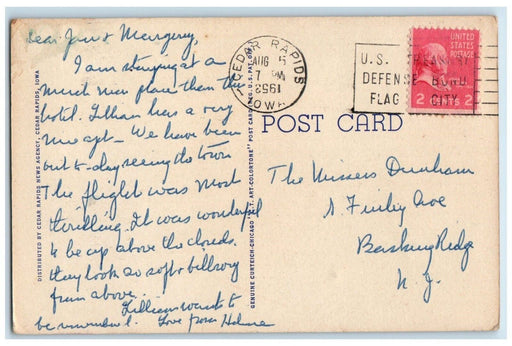 Dear Jan & Margery,
I am staying at a
much nicer place than the
hotel. Lillian has a very
nice apt - We have been
out to-day seeing the town
The flight was most
thrilling. It was wonderful
to be up above the clouds.
they look so soft & billowy
from above.
Lillian wants to
be remembered. Love from Helene
DISTRIBUTED BY CEDAR RAPIDS NEWS AGENCY, CEDAR RAPIDS, IOWA
GENUINE CURTEICH-CHICAGO "C.T. ART-COLORTONE" POST CARD (REG. U.S. PAT. OFF.)
CEDAR RAPIDS
AUG 5
7 PM
IOWA
U.S.
DEFENSE BOND
FLAG CITY
UNITED STATES
POSTAGE
2 CENTS 2
POST CARD
The Misses Dunham
Finley Ave
Basking Ridge
N. J.